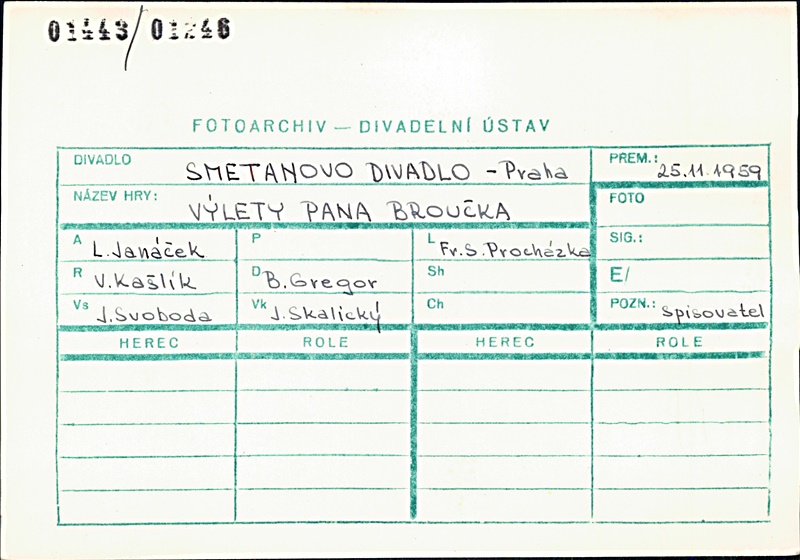 01443/01246
FOTOARCHIV — DIVADELNÍ ÚSTAV
DIVADLO SMETANOVO DIVADLO - Praha PREM.: 25.11.1959
NÁZEV HRY: VÝLETY PANA BROUČKA FOTO
A L. Janáček P L Fr. S. Procházka SIG.:
R V. Kašlík D B. Gregor Sh E/
Vs J. Svoboda Vk J. Skalický Ch POZN.: spisovatel
HEREC ROLE HEREC ROLE